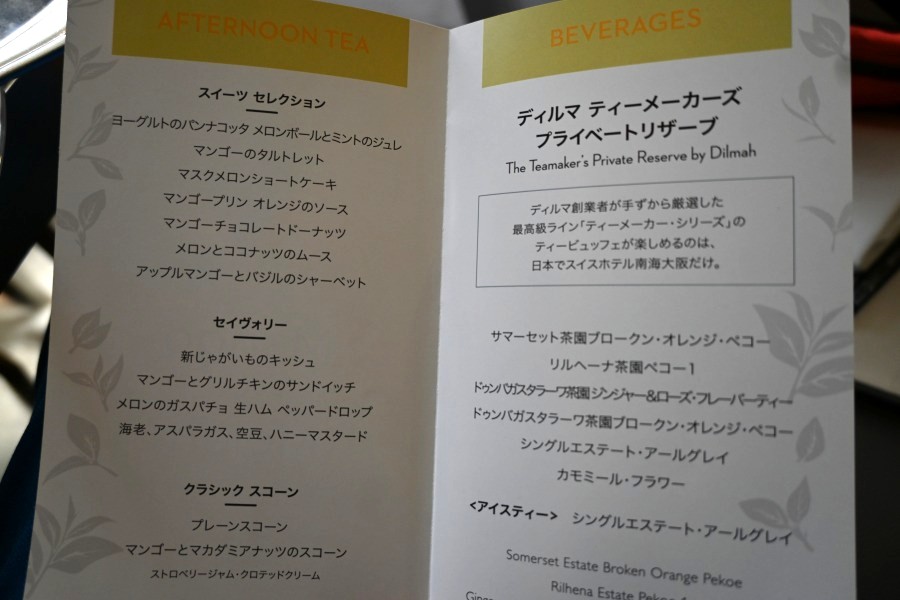 AFTERNOON TEA
スイーツ セレクション
ヨーグルトのパンナコッタ メロンボールとミントのジュレ
マンゴーのタルトレット
マスクメロンショートケーキ
マンゴープリン オレンジのソース
マンゴーチョコレートドーナッツ
メロンとココナッツのムース
アップルマンゴーとバジルのシャーベット
セイヴォリー
新じゃがいものキッシュ
マンゴーとグリルチキンのサンドイッチ
メロンのガスパチョ 生ハム ペッパードロップ
海老、アスパラガス、空豆、ハニーマスタード
クラシック スコーン
プレーンスコーン
マンゴーとマカダミアナッツのスコーン
ストロベリージャム・クロテッドクリーム
BEVERAGES
ディルマ ティーメーカーズ
プライベートリザーブ
The Teamaker's Private Reserve by Dilmah
ディルマ創業者が手ずから厳選した
最高級ライン「ティーメーカー・シリーズ」の
ティービュッフェが楽しめるのは、
日本でスイスホテル南海大阪だけ。
サマーセット茶園ブロークン・オレンジ・ペコー
リルヘーナ茶園ペコー1
ドゥンバガスタラーワ茶園 ジンジャー&ローズ・フレーバーティー
ドゥンバガスタラーワ茶園ブロークン・オレンジ・ペコー
シングルエステート・アールグレイ
カモミール・フラワー
<アイスティー> シングルエステート・アールグレイ
Somerset Estate Broken Orange Pekoe
Rilhena Estate Pekoe